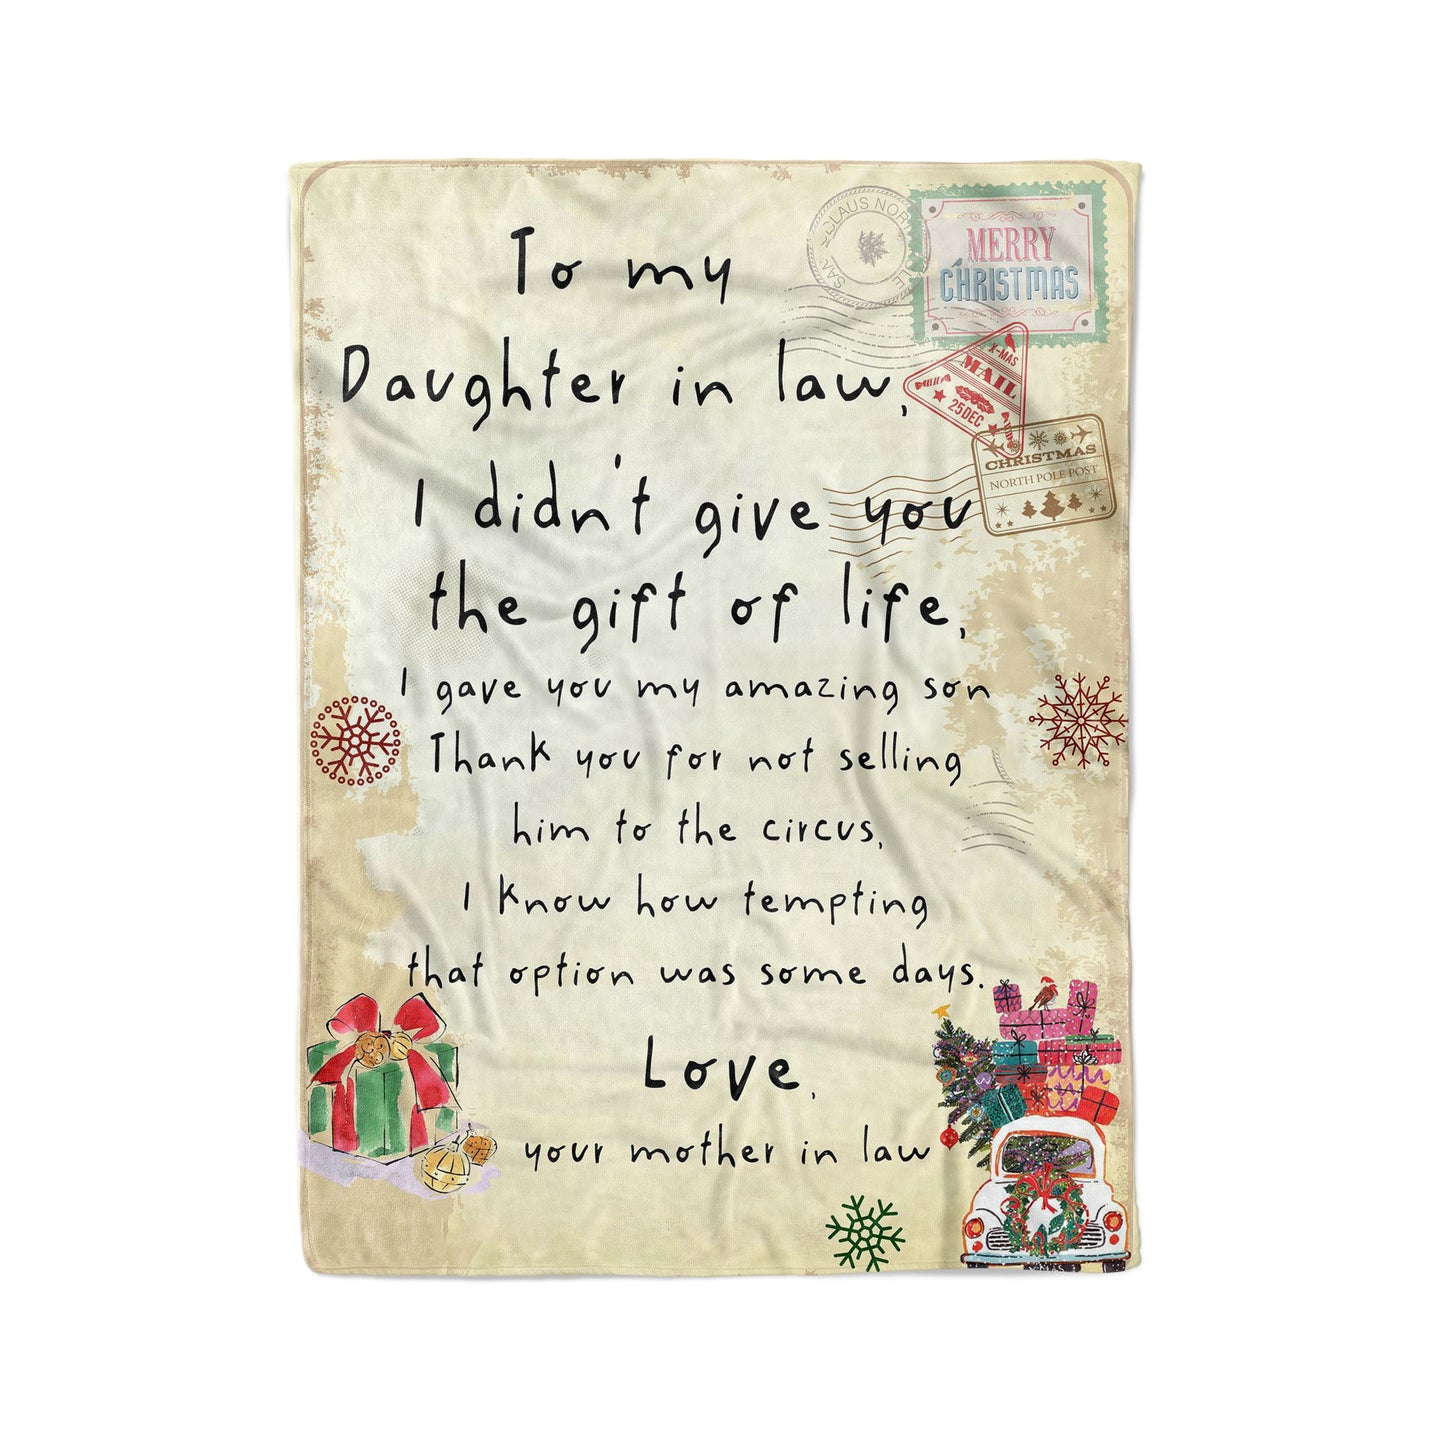 SANTA CLAUS NORTH POLE
MERRY
CHRISTMAS
To my
Daughter in law,
X-MAS
MAIL
25 DEC
CHRISTMAS
NORTH POLE POST
I didn't give you
the gift of life,
I gave you my amazing son
Thank you for not selling
him to the circus,
I know how tempting
that option was some days.
Love,
your mother in law